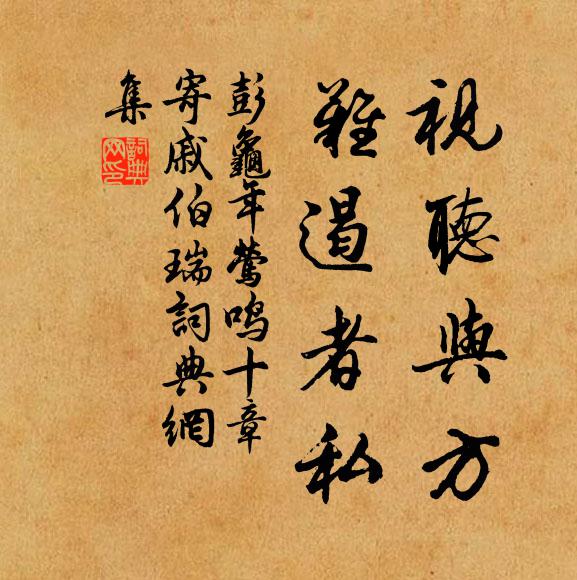 視聽與方
難遏者私
彭龜年鶯鳴十章
寄戚伯瑞詞典網
集
詞典網印